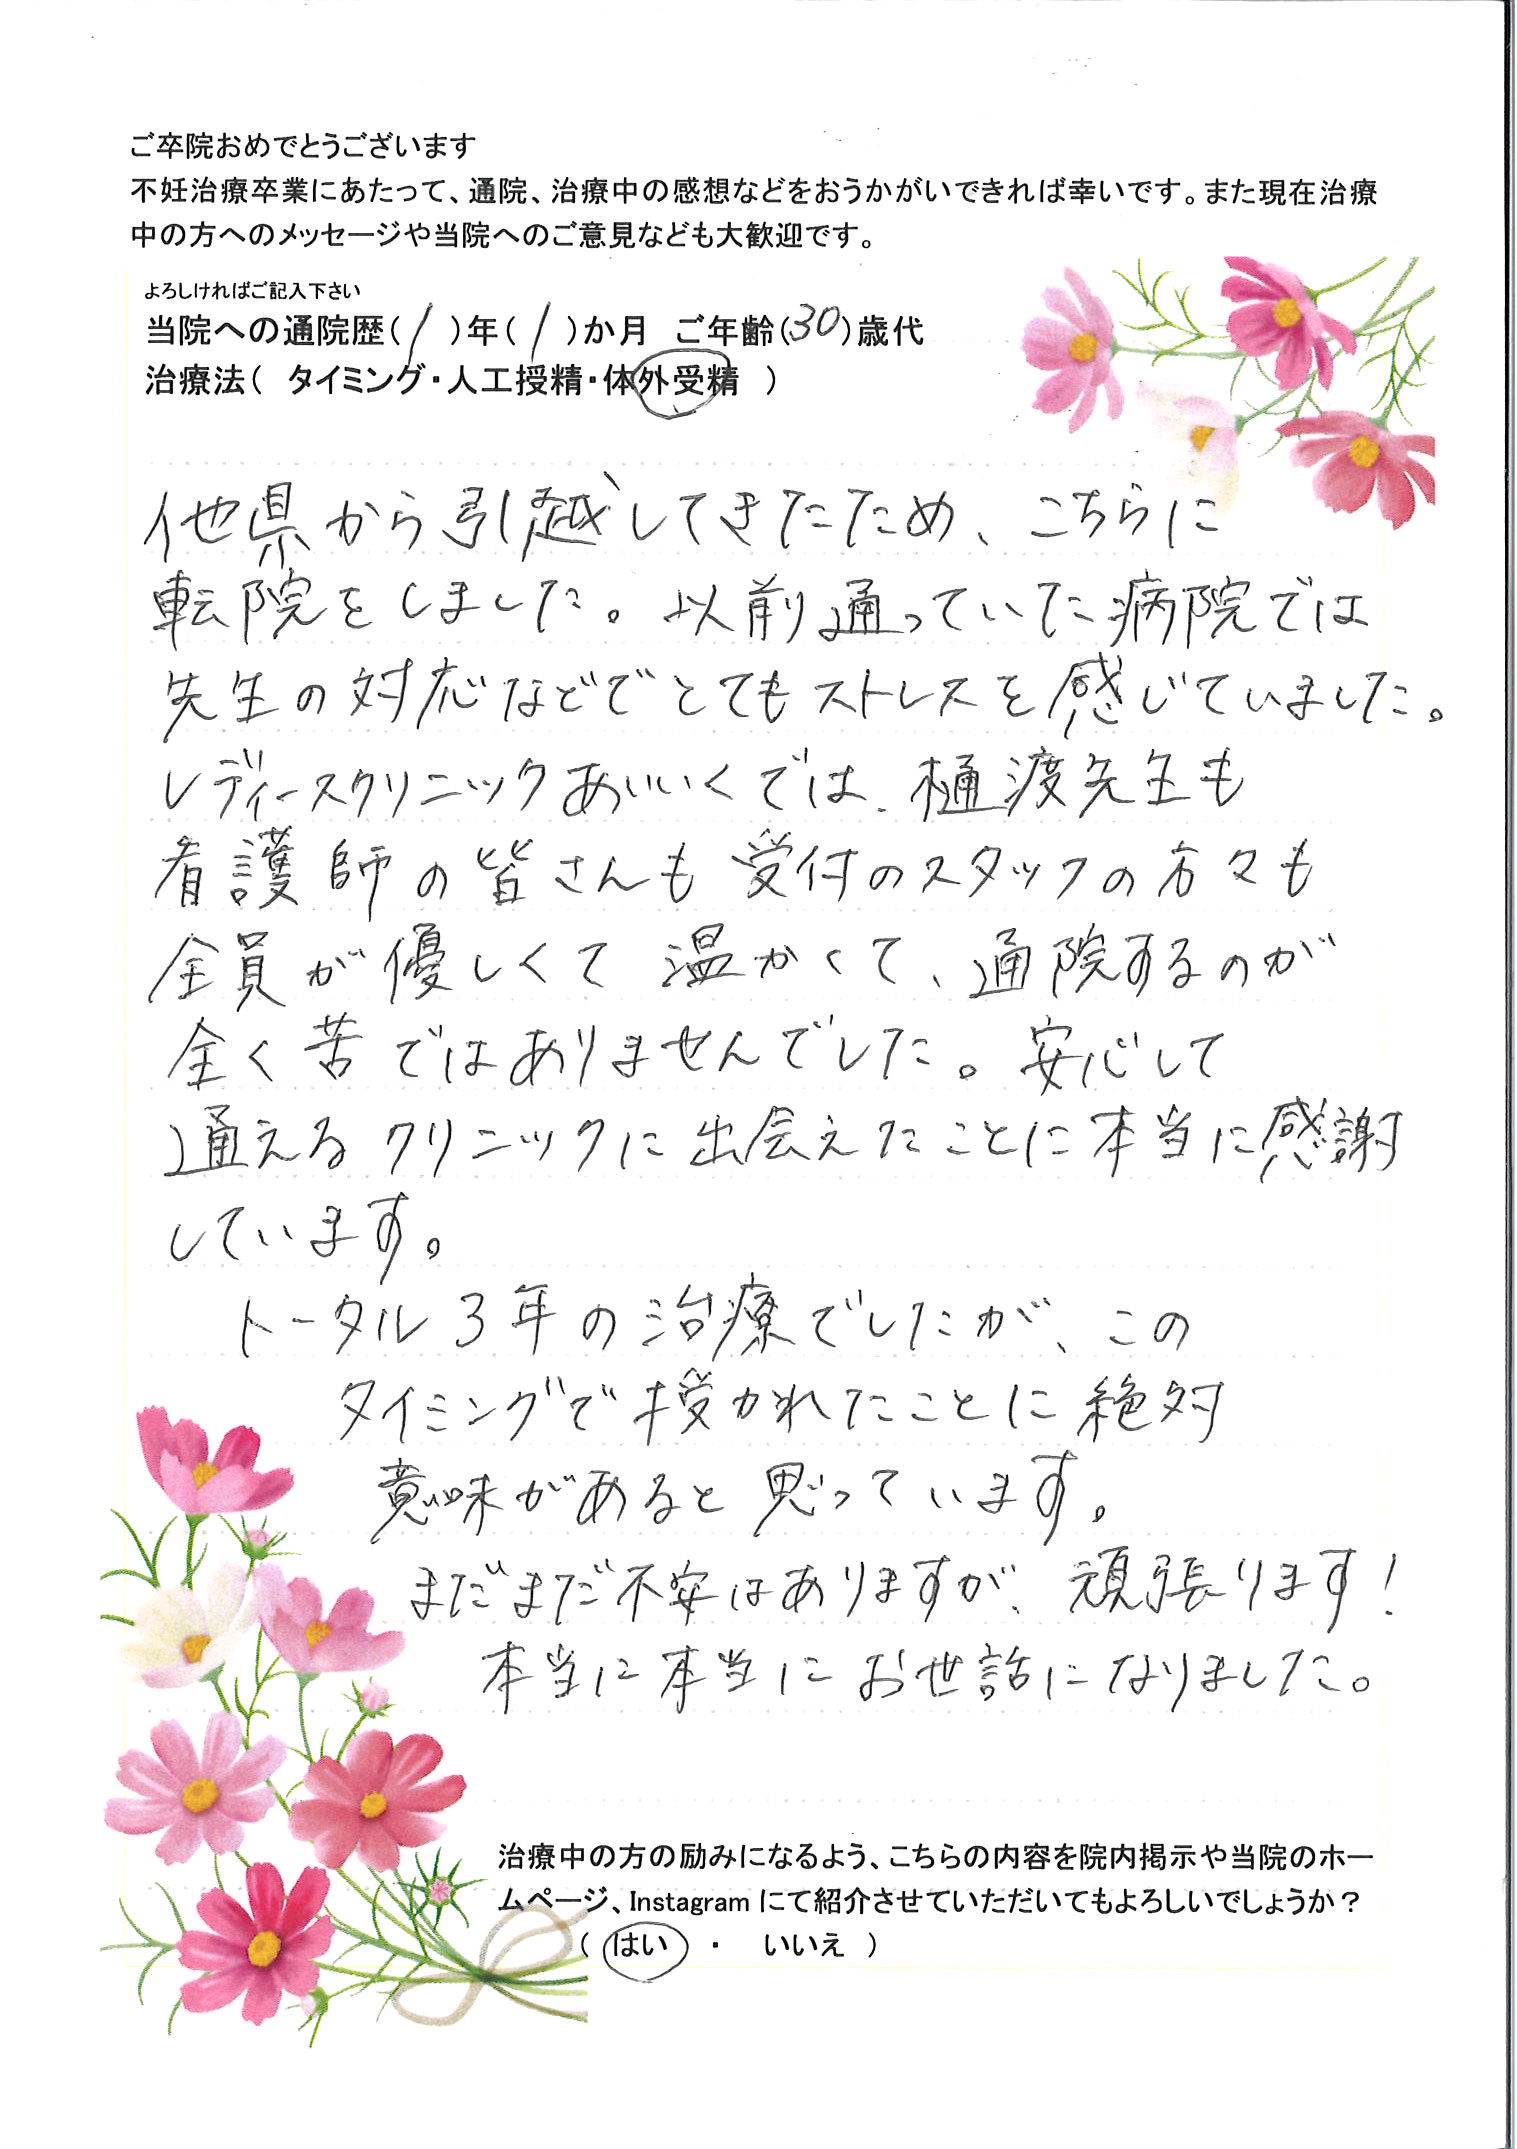 ご卒院おめでとうございます
不妊治療卒業にあたって、通院、治療中の感想などをおうかがいできれば幸いです。また現在治療
中の方へのメッセージや当院へのご意見なども大歓迎です。
よろしければご記入下さい
当院への通院歴(1)年(1)か月　ご年齢(30)歳代
治療法(　タイミング・人工授精・体外受精　)
他県から引越してきたため、こちらに
転院をしました。以前通っていた病院では
先生の対応などでとてもストレスを感じていました。
レディースクリニックあいいくでは、樋渡先生も
看護師の皆さんも受付のスタッフの方々も
全員が優しくて温かくて、通院するのが
全く苦ではありませんでした。安心して
通えるクリニックに出会えたことに本当に感謝
しています。
トータル3年の治療でしたが、この
タイミングで授かれたことに絶対
意味があると思っています。
まだまだ不安はありますが、頑張ります!
本当に本当にお世話になりました。
治療中の方の励みになるよう、こちらの内容を院内掲示や当院のホー
ムページ、Instagramにて紹介させていただいてもよろしいでしょうか?
(　はい　・　いいえ　)